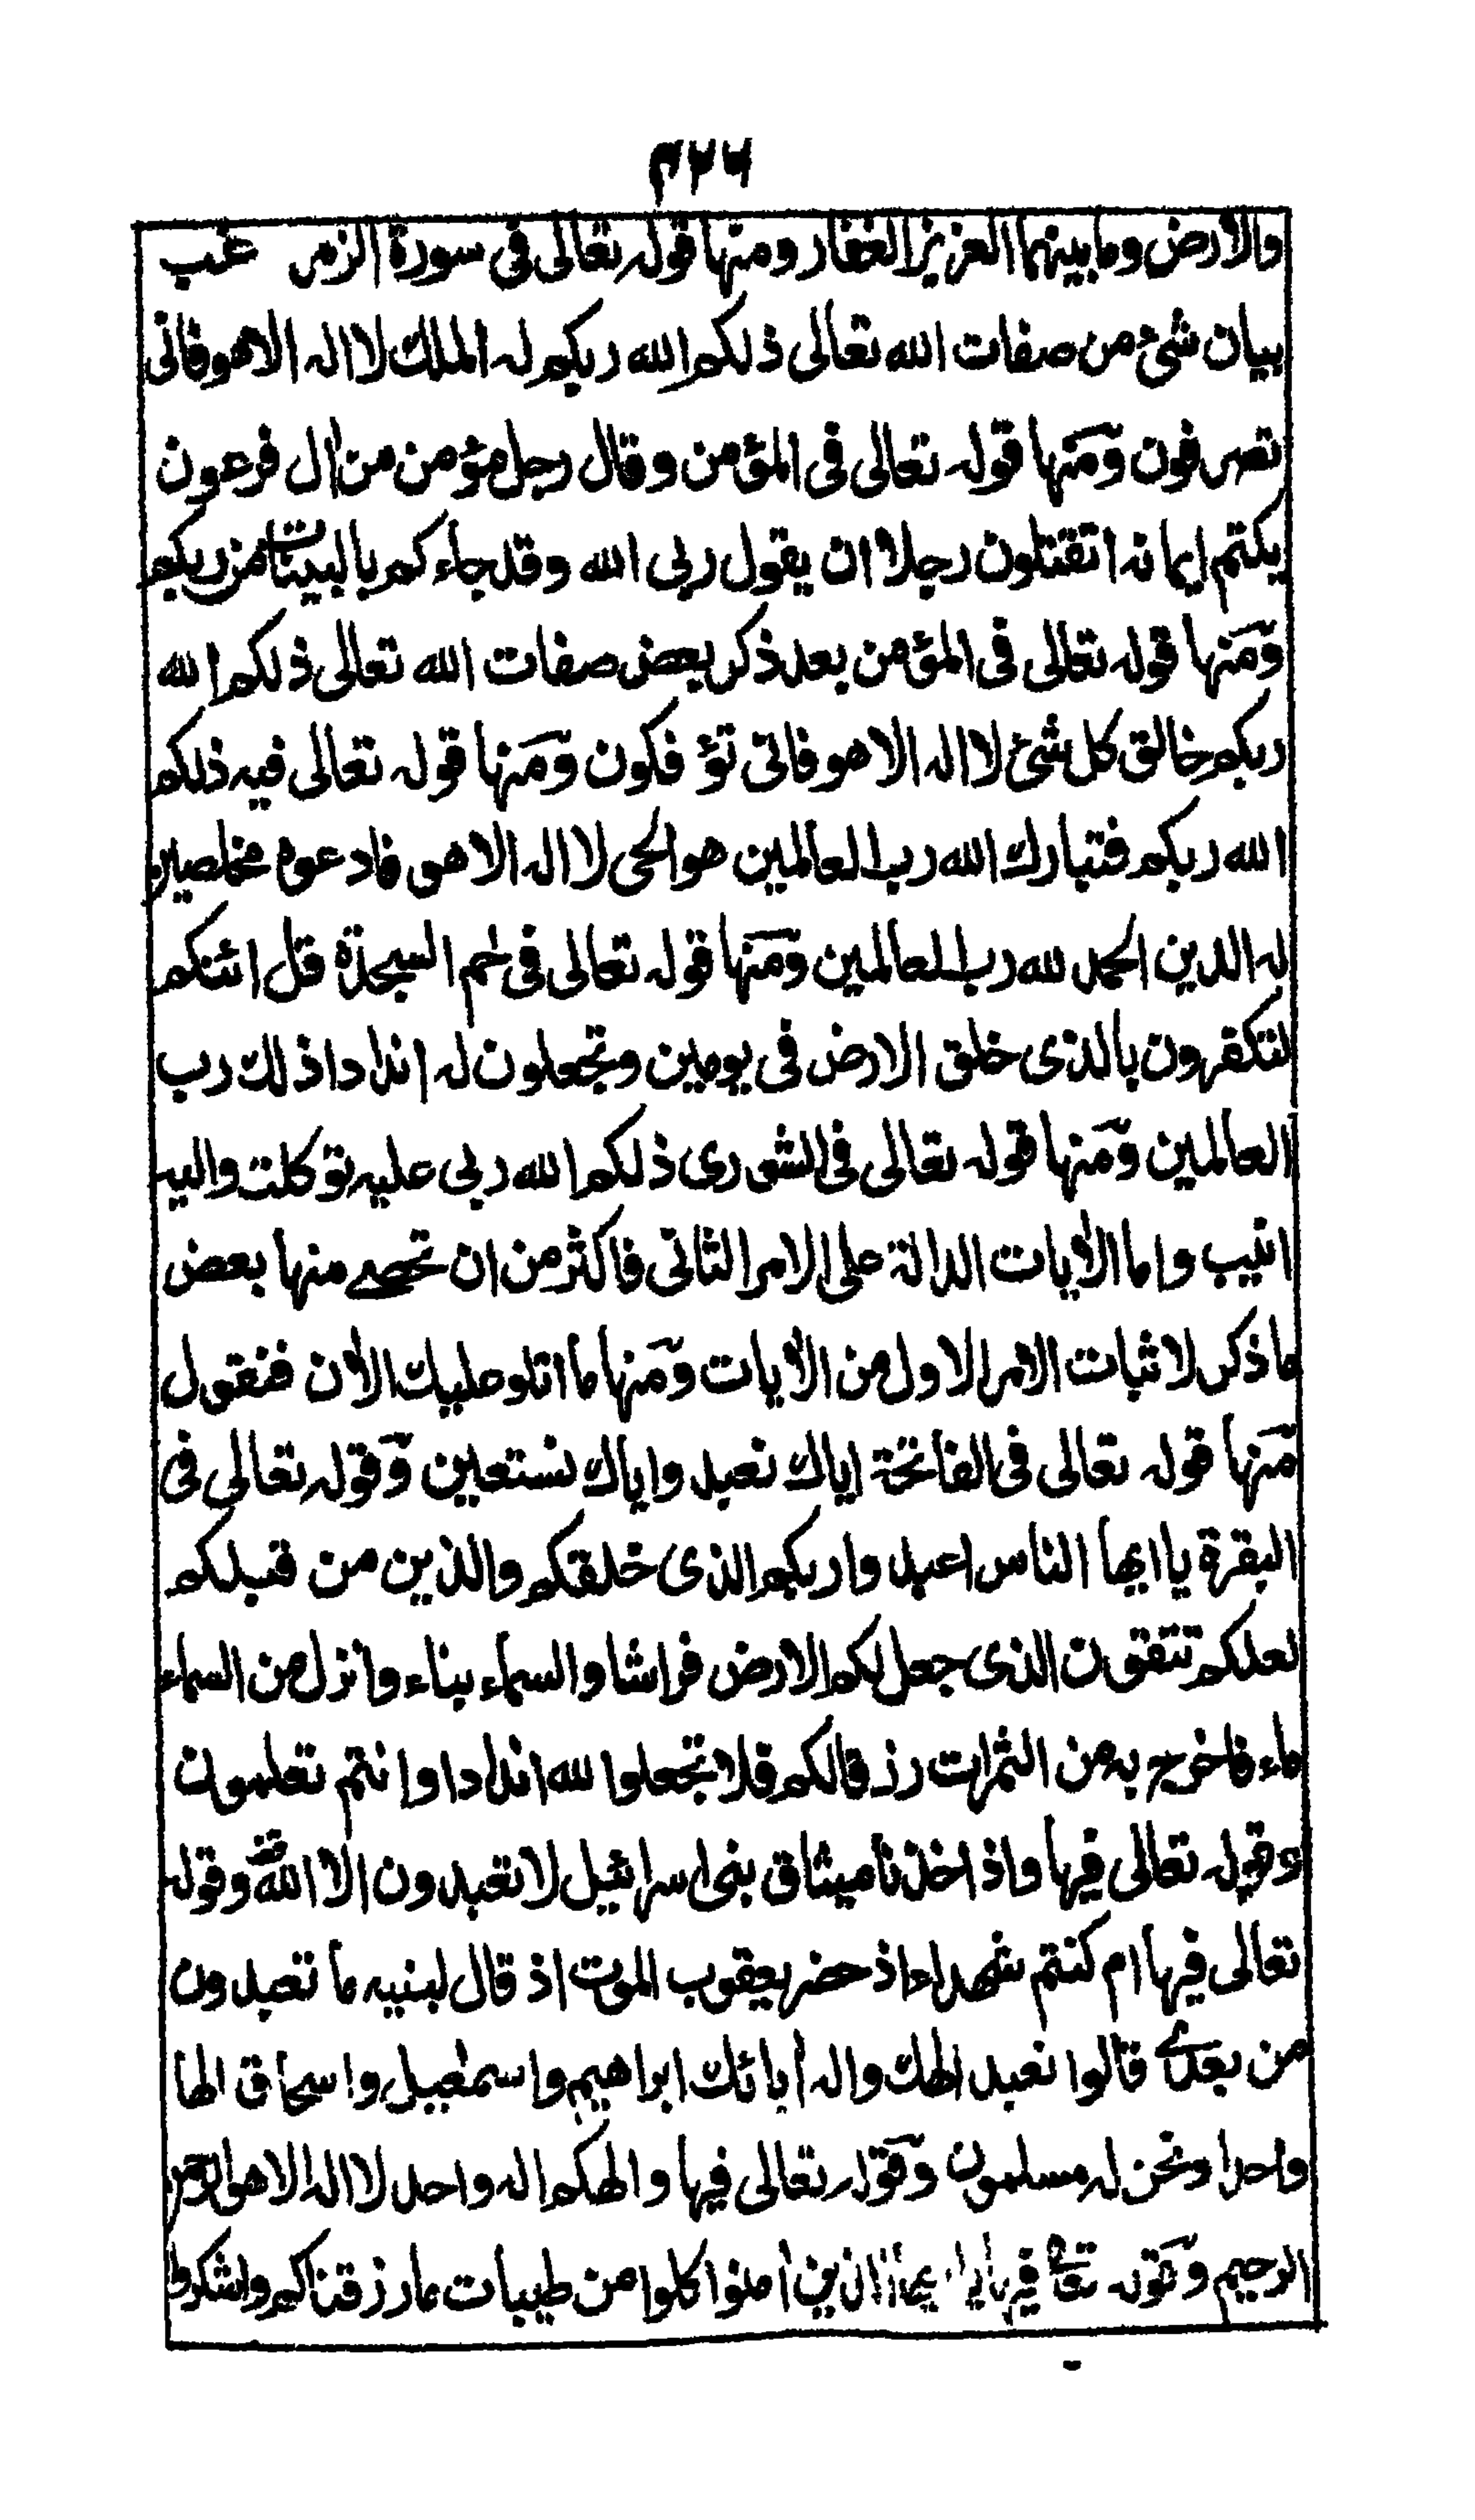 ۴۶۶
والارض وما بينهما العزيز الغفار ومنها قوله تعالى فى سورة الزمر عقب
بيان شئ من صفات الله تعالى ذلكم الله ربكم له الملك لا اله الا هو فانى
تصرفون ومنها قوله تعالى فى المؤمن وقال رجل مؤمن من اٰل فرعون
يكتم ايمانه اتقتلون رجلا ان يقول ربى الله وقد جاءكم بالبينات من ربكم
ومنها قوله تعالى فى المؤمن بعد ذكر بعض صفات الله تعالى ذلكم الله
ربكم خالق كل شئ لا اله الا هو فانى تؤفكون ومنها قوله تعالى فيه ذلكم
الله ربكم فتبارك الله رب العالمين هو الحى لا اله الا هو فادعوه مخلصين
له الدين الحمد لله رب العالمين ومنها قوله تعالى فى حٰم السجدة قل ائنكم
لتكفرون بالذى خلق الارض فى يومين وتجعلون له اندادا ذلك رب
العالمين ومنها قوله تعالى فى الشورى ذلكم الله ربى عليه توكلت واليه
انيب واما الاٰيات الدالة على الامر الثانى فاكثر من ان تحصى منها بعض
ما ذكر لاثبات الامر الاول من الاٰيات ومنها ما اتلو عليك الاٰن فنقول
منها قوله تعالى فى الفاتحة اياك نعبد واياك نستعين وقوله تعالى فى
البقرة يا ايها الناس اعبدوا ربكم الذى خلقكم والذين من قبلكم
لعلكم تتقون الذى جعل لكم الارض فراشا والسماء بناء وانزل من السماء
ماء فاخرج به من الثمرات رزقا لكم فلا تجعلوا لله اندادا وانتم تعلمون
وقوله تعالى فيها واذ اخذنا ميثاق بنى اسرائيل لا تعبدون الا الله وقوله
تعالى فيها ام كنتم شهداء اذ حضر يعقوب الموت اذ قال لبنيه ما تعبدون
من بعدى قالوا نعبد الهك واله اٰبائك ابراهيم واسمعيل واسحاق الها
واحدا ونحن له مسلمون وقوله تعالى فيها والهكم اله واحد لا اله الا هو الرحمن
الرحيم وقوله تعالى فيها يا ايها الذين اٰمنوا كلوا من طيبات ما رزقناكم واشكروا